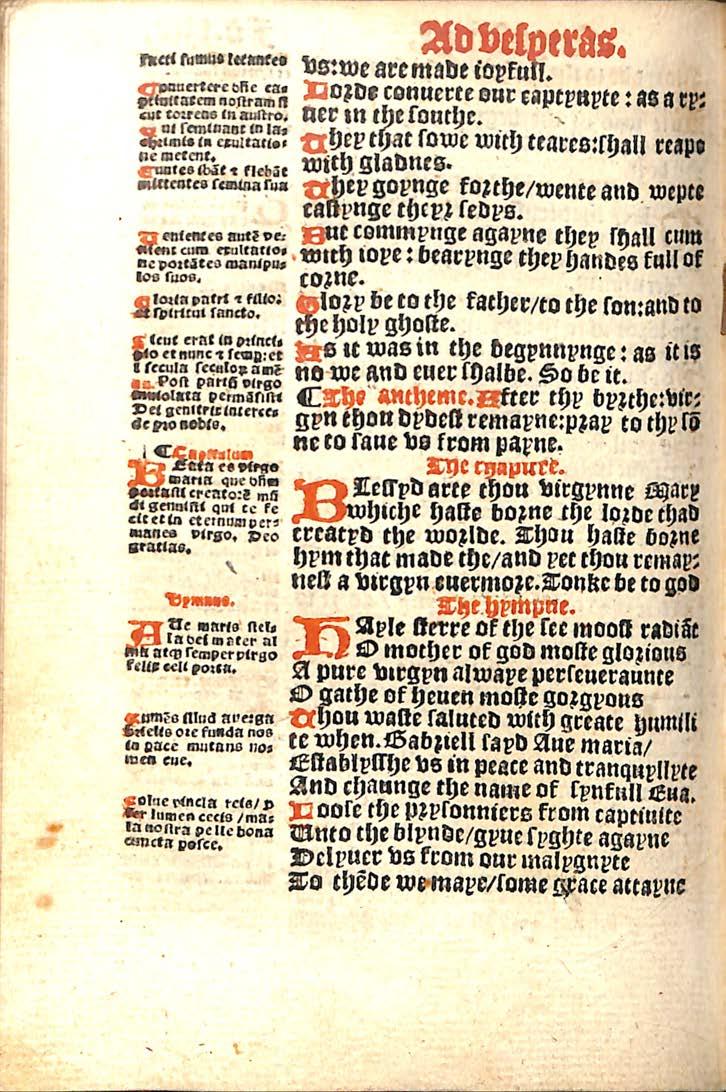 Ad vesperas.
facti sumus letantes
Conuertere dñe cap
tiuitatem nostram si
cut torrens in austro.
Qui seminant in la-
chrimis in exultatio-
ne metent.
Euntes ibāt ⁊ flebāt
mittentes semina sua
Uenientes autē ve-
nient cum exultatio-
ne portātes manipu-
los suos.
Gloria patri ⁊ filio:
et spiritui sancto.
Sicut erat in princi-
pio et nunc ⁊ semp: et
i secula seculoꝝ amē
an. Post partū virgo
inuiolata permāsisti
Dei genitrix interce-
de pro nobis.
¶Capitulum
BEata es virgo
maria que dñm
portasti creatorē mū
di genuisti qui te fe
cit et in eternum per-
manes virgo. Deo
gratias.
Hymnus.
AUe maris stel-
la dei mater al
ma atq̄ semper virgo
felix celi porta.
Sumēs illud aue ga
brielis ore funda nos
in pace mutans no-
men eue.
Solue vincla reis/ p
fer lumen cecis / ma-
la nostra pelle bona
cuncta posce.
vs:we are made ioyfull.
Lorde conuerte our captyuyte : as a ry-
uer in the southe.
They that sowe with teares:shall reape
with gladnes.
They goynge forthe/wente and wepte
castynge theyr sedys.
But commynge agayne they shall cum
with ioye : bearynge they handes full of
corne.
Glory be to the father/to the son:and to
the holy ghoste.
As it was in the begynnynge : as it is
no we and euer shalbe. So be it.
¶The antheme. After thy byrthe:vir-
gyn thou dydest remayne:pray to thy sō
ne to saue vs from payne.
The chapitre.
BLessyd arte thou virgynne Mary
whiche haste borne the lorde thad
creatyd the worlde. Thou haste borne
hym that made the/and yet thou remay-
nest a virgyn euermore. Tonke be to god
The hympne.
HAyle sterre of the see moost radiāt
O mother of god moste glorious
A pure virgyn alwaye perseueraunte
O gathe of heuen moste gorgyous
Thou waste saluted with greate humili
te when. Gabriell sayd Aue maria/
Establysshe vs in peace and tranquyllyte
And chaunge the name of synfull Eua.
Loose the prysonniers from captiuite
Unto the blynde/gyue syghte agayne
Delyuer vs from our malygnyte
To thēde we maye/some grace attayne